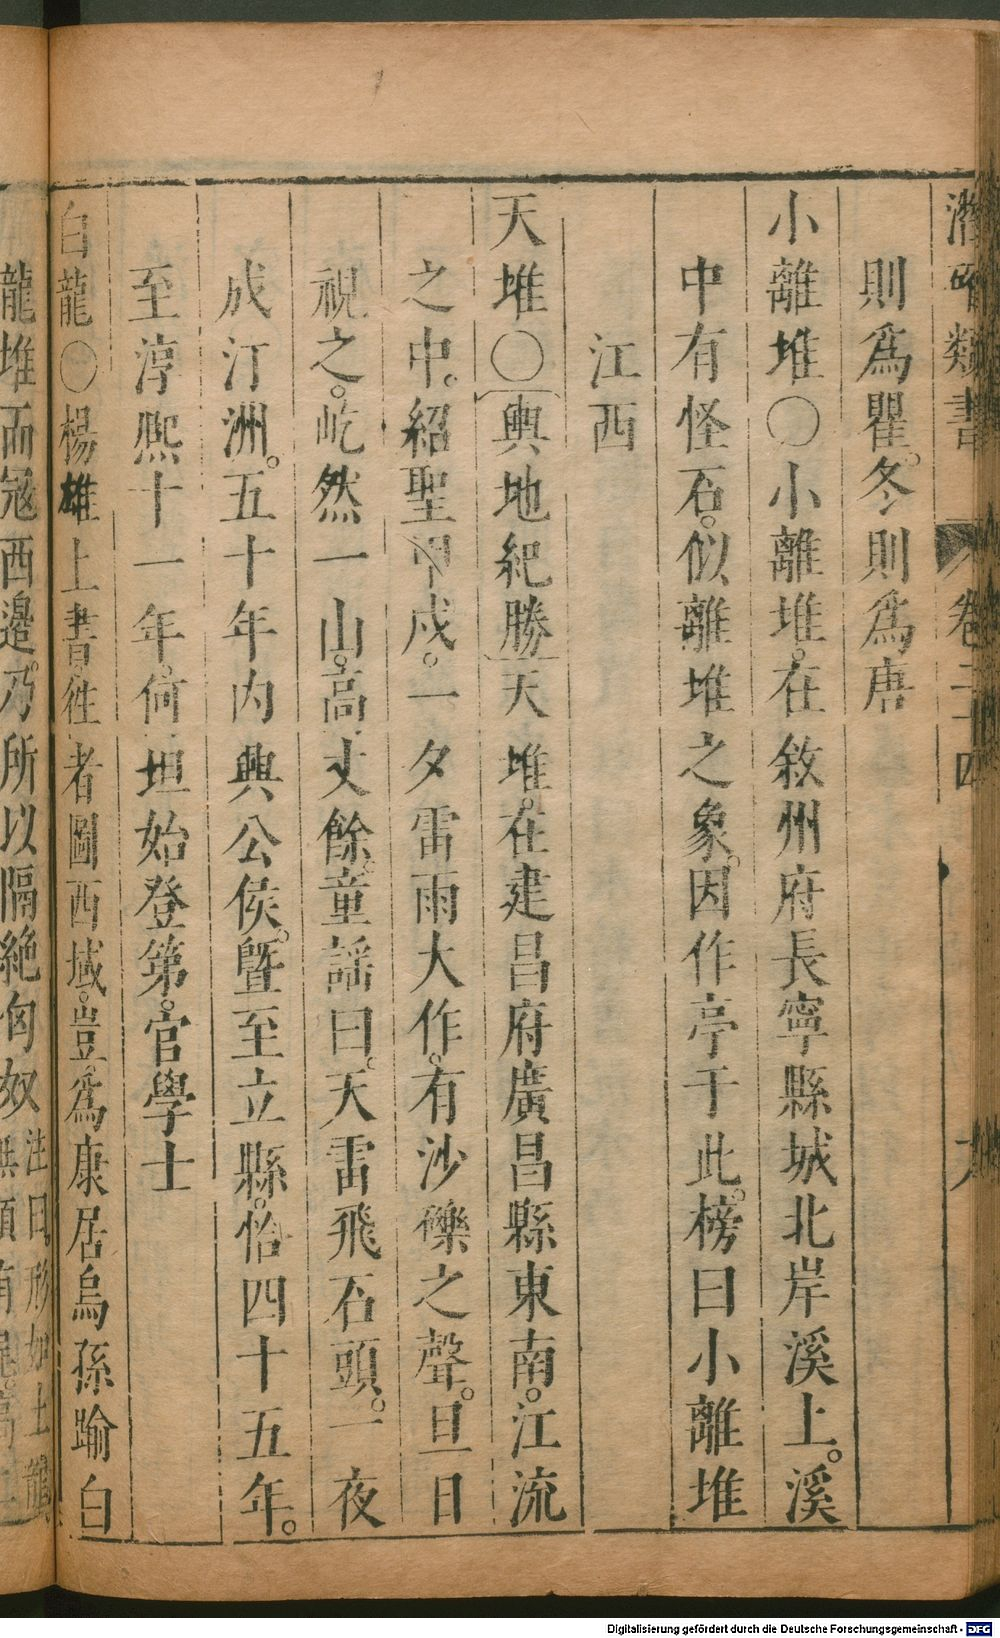 潛確類書 卷二十四 九
則爲瞿。冬則爲唐
小離堆○小離堆。在敘州府長寧縣城北岸溪上。溪
中有怪石。似離堆之象。因作亭于此。榜曰小離堆
江西
天堆○輿地紀勝天堆。在建昌府廣昌縣東南。江流
之中。紹聖甲戌。一夕雷雨大作。有沙礫之聲。旦日
視之。屹然一山。高丈餘。童謡曰。天雷飛石頭。一夜
成汀洲。五十年內興公侯。曁至立縣。恰四十五年。
至淳熙十一年。何坦始登第。官學士
白龍○楊雄上書。徃者圖西域。豈爲康居烏孫踰白
龍堆而寇西邊。乃所以隔絶匈奴 注曰。形如土龍 無頭有尾。高
Digitalisierung gefördert durch die Deutsche Forschungsgemeinschaft - DFG